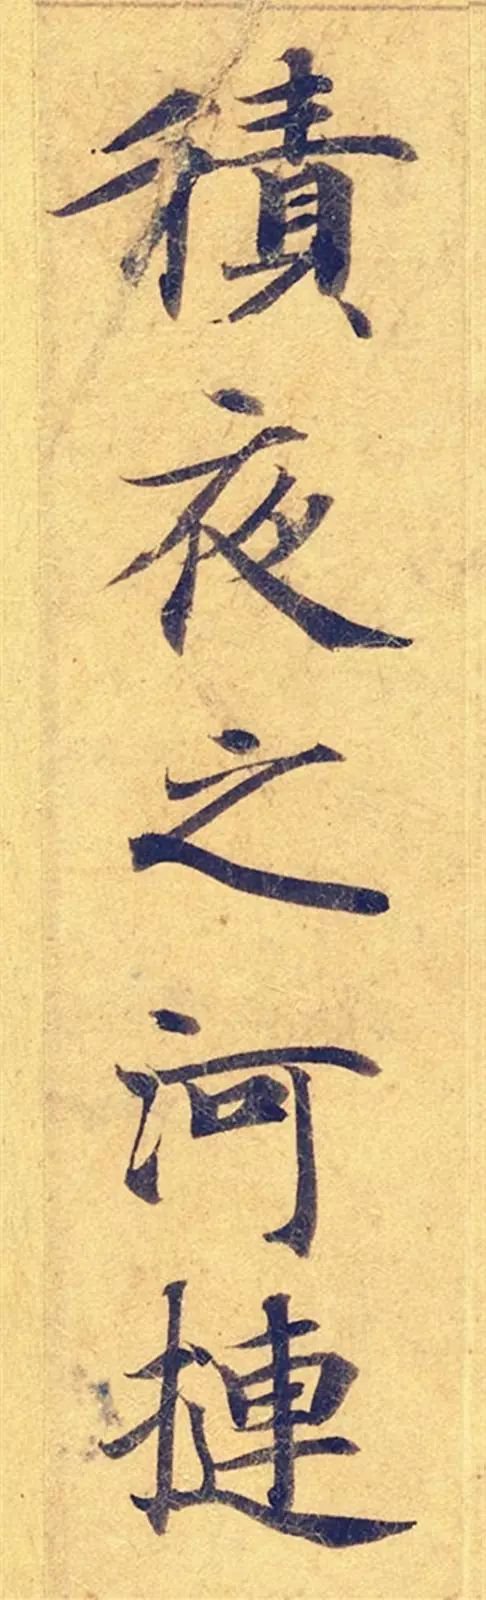 積夜之河摙